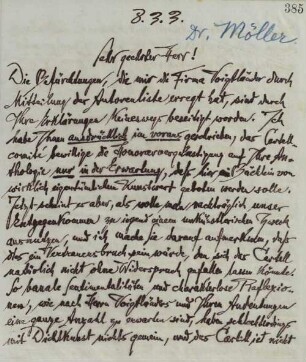 385
8.3.3.
Dr. Möller
Sehr geehrter Herr!
Die Befürchtungen, die mir die Firma Voigtländer durch
Mitteilung der Autorenliste erregt hat, sind durch
Ihre Erklärungen keineswegs beseitigt worden. Ich
habe Ihnen ausdrücklich im voraus geschrieben, das Cartell-
comité bewillige die Honorarermäßigung auf Ihre An-
thologie nur in der Erwartung, daß hier ein Büchlein von
wirklich eigentümlichem Kunstwert geboten werden solle.
Jetzt scheint es aber, als wolle man nachträglich unser
Entgegenkommen zu irgend einem unkünstlerischen Zweck
ausnutzen, und ich mache Sie darauf aufmerksam, daß
das ein Vertrauensbruch sein würde, den sich das Cartell
natürlich nicht ohne Widerspruch gefallen lassen könnte.
So banale Sentimentalitäten und charakterlose Reflexio-
nen, wie nach Herrn Voigtländers und Ihren Andeutungen
eine ganze Anzahl zu erwarten sind, haben schlechterdings
mit Dichtkunst nichts gemein, und das Cartell ist nicht